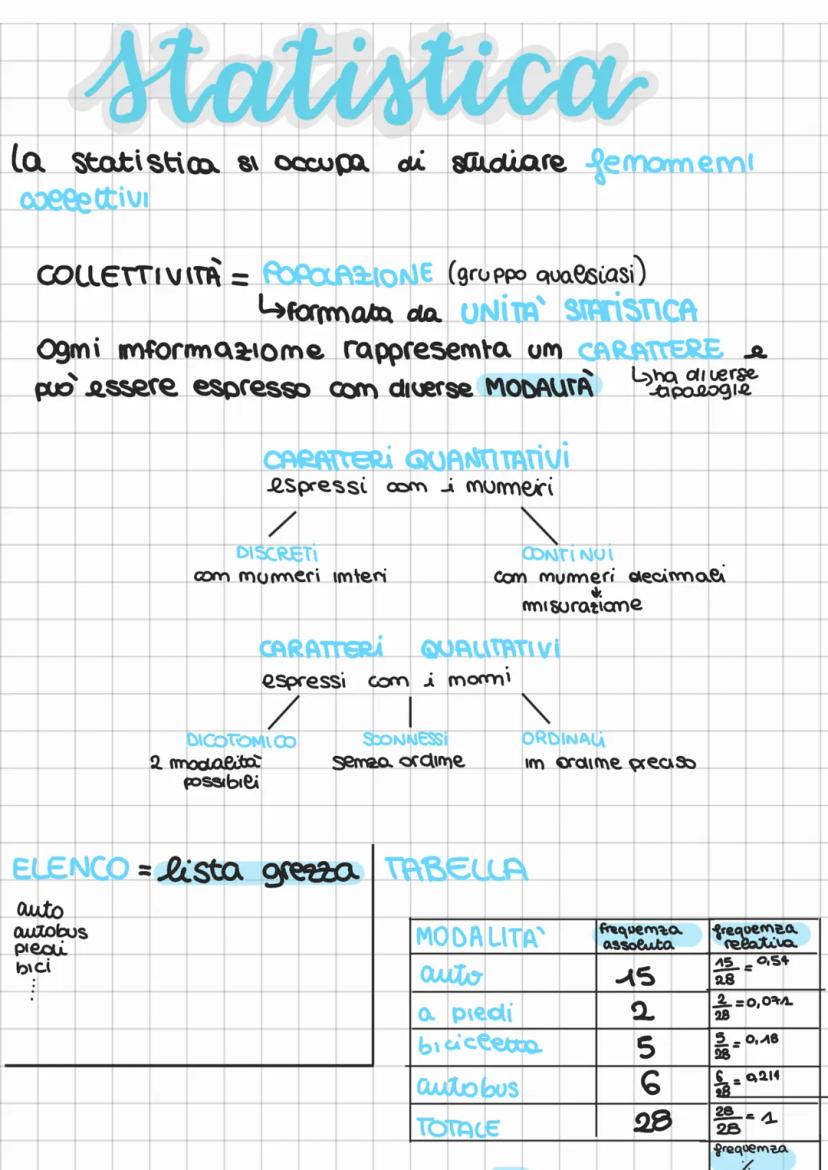 Statistica
la statistica si occupa di studiare fenomeni
collettivi
COLLETTIVITÀ = POPOLAZIONE (gruppo qualsiasi)
↳formata da UNITA' STATISTICA
Ogni informazione rappresenta un CARATTERE e
può essere espresso con diverse MODALITÀ
↳ha diverse
tipologie
CARATTERI QUANTITATIVI
espressi con i numeri
DISCRETI
con numeri interi
CONTINUI
con numeri decimali
↓
misurazione
CARATTERI QUALITATIVI
espressi con i nomi
DICOTOMICO
2 modalità
possibili
SCONNESSI
senza ordine
ORDINALI
in ordine preciso
ELENCO = lista grezza
auto
autobus
piedi
bici
⋮
TABELLA
MODALITA' frequenza assoluta frequenza relativa
auto 15 15/28 = 0,54
a piedi 2 2/28 = 0,071
bicicletta 5 5/28 = 0,18
autobus 6 6/28 = 0,214
TOTALE 28 28/28 = 1
frequenza